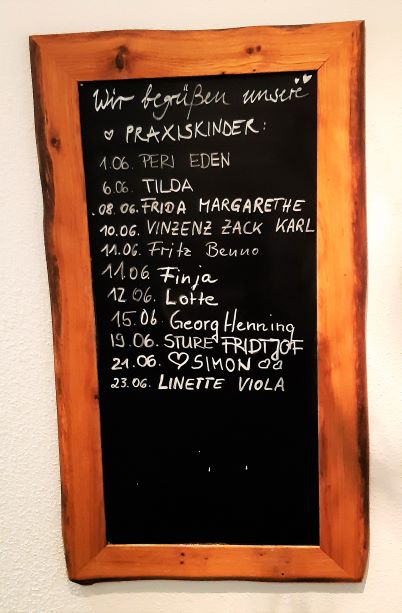 Wir begrüßen unsere
♡ PRAXISKINDER:
1.06. PERI EDEN
6.06. TILDA
08.06. FRIDA MARGARETHE
10.06. VINZENZ ZACK KARL
11.06. Fritz Benno
11.06. Finja
12.06. Lotte
15.06. Georg Henning
19.06. STURE FRIDTJOF
21.06. ♡ SIMON ♡♡
23.06. LINETTE VIOLA